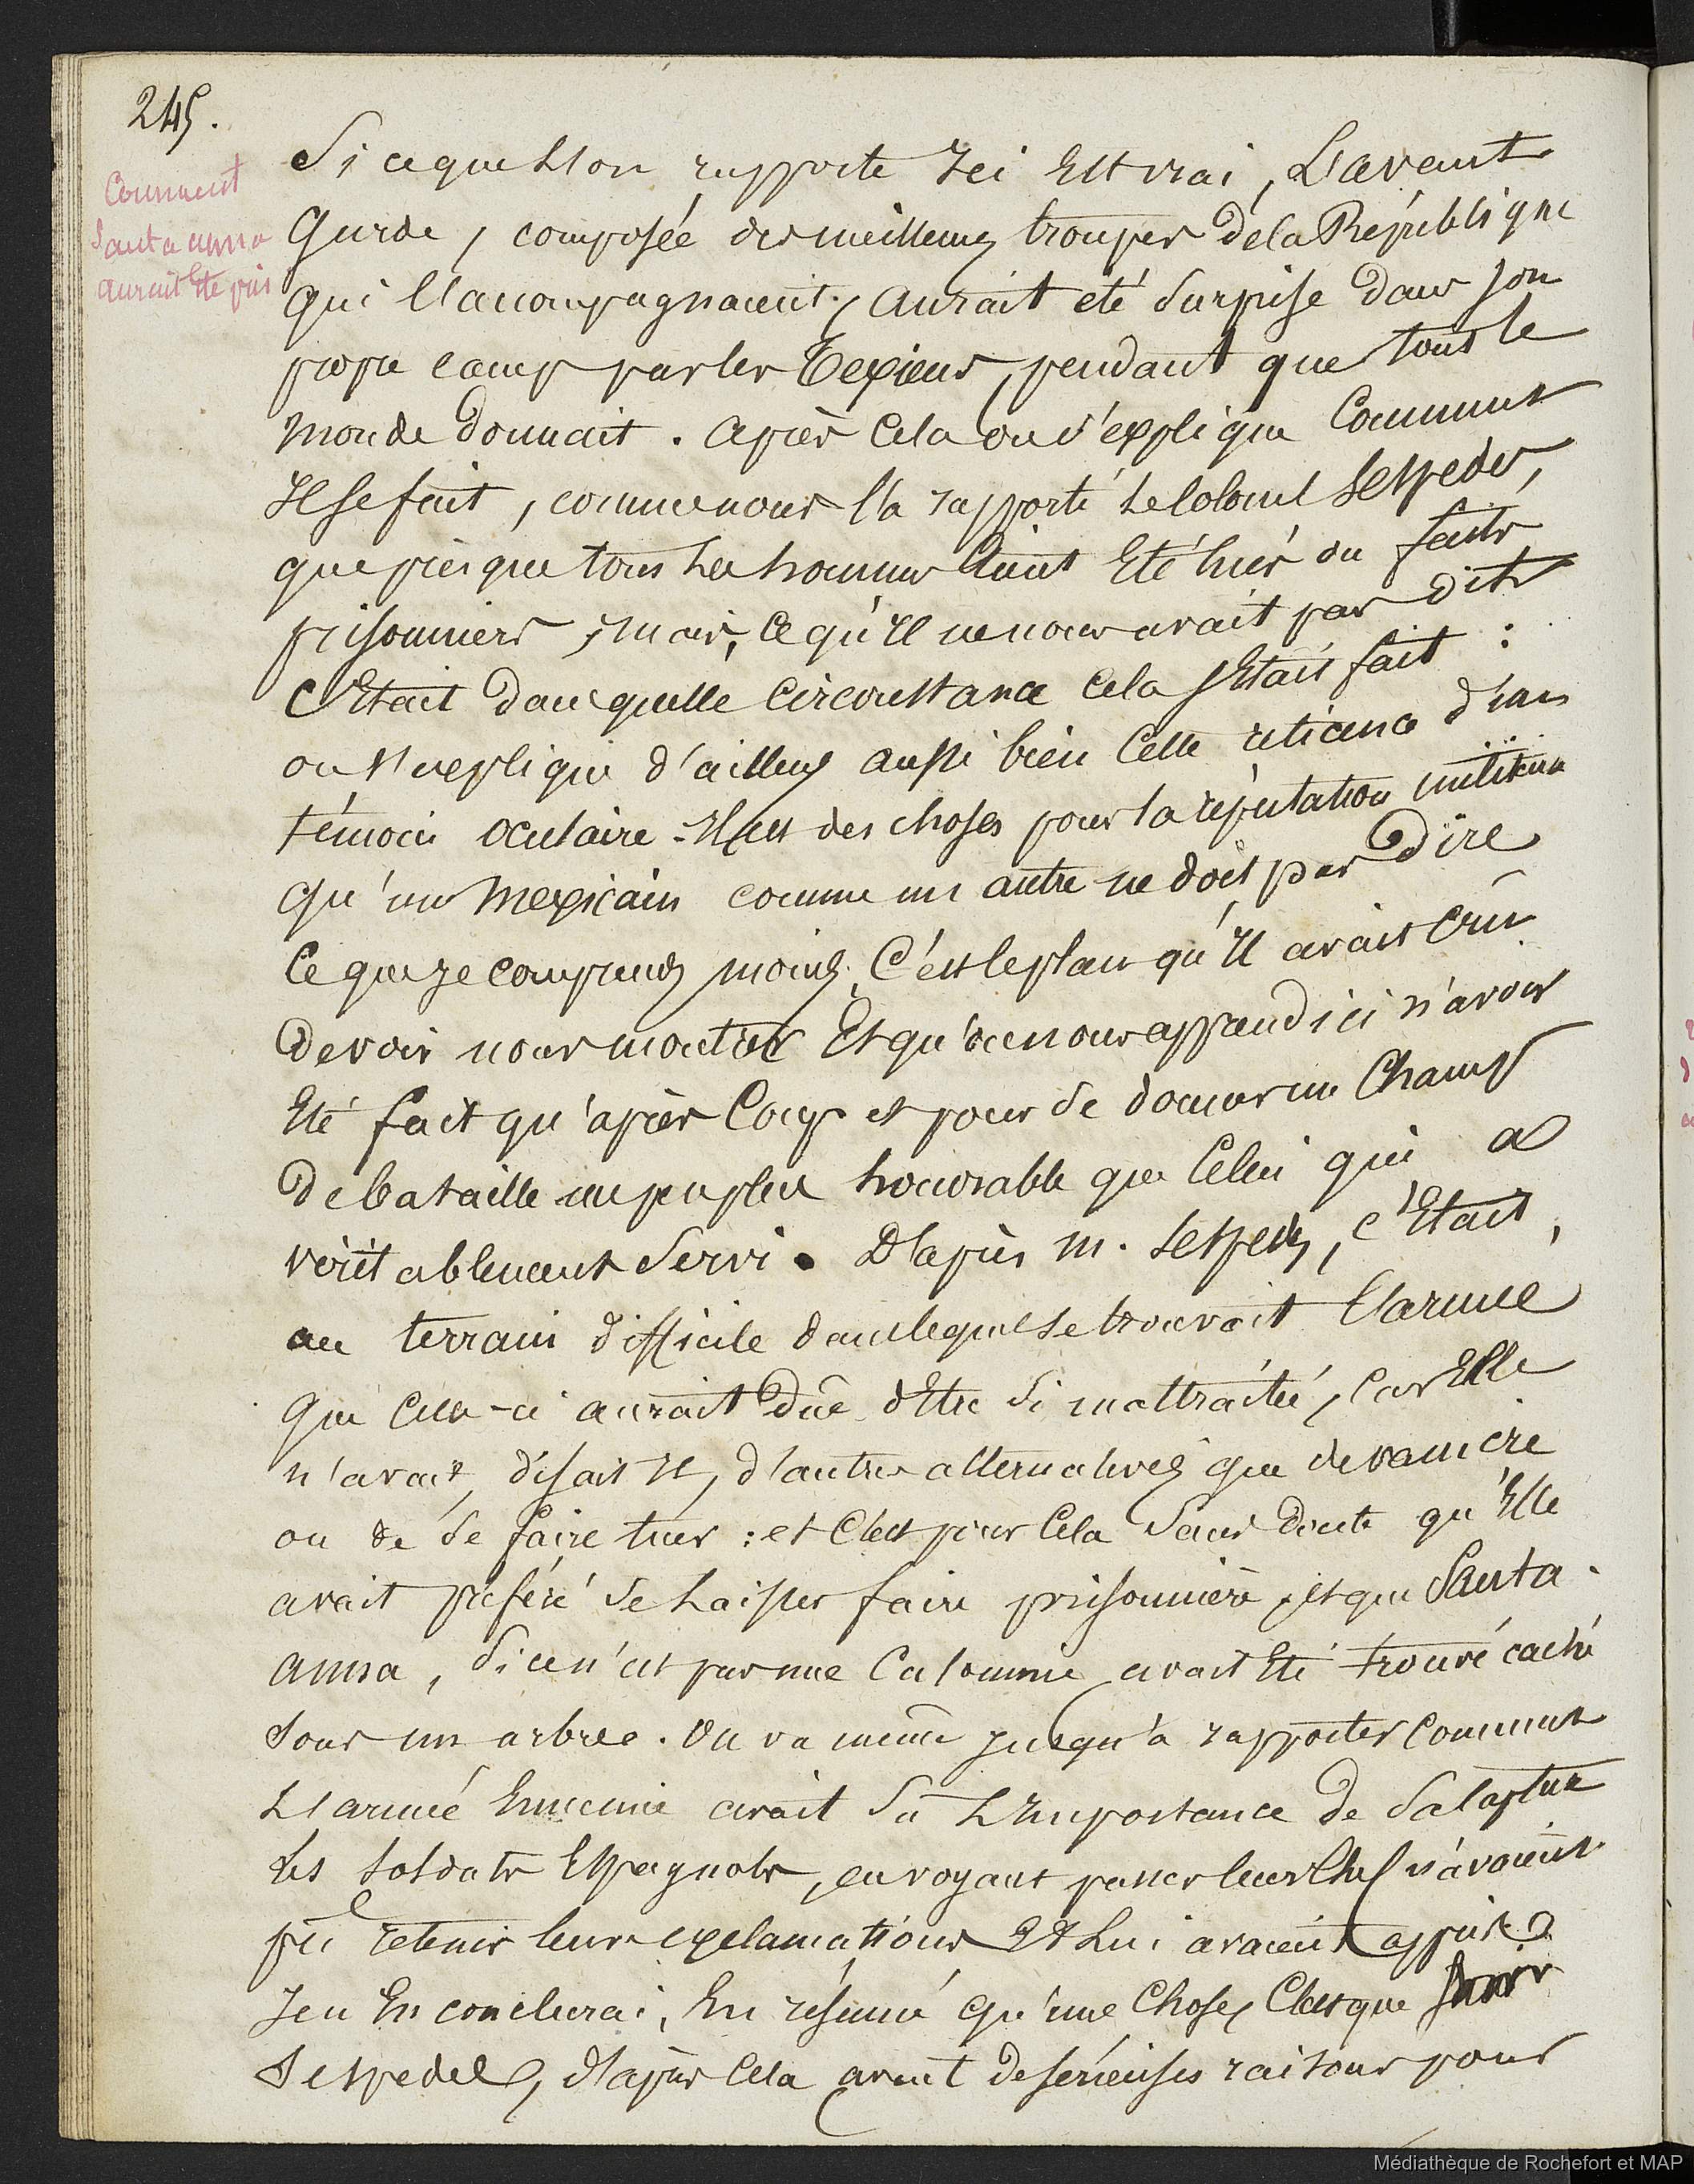 245.
Comment
Santa anna
aurait Eté pris
Si ceque L'on rapporte Ici Est vrai, L'avant
Garde, composée des meilleures troupes de la République
qui l'accompagnaient, aurait été Surprise dans son
propre camp par les Texiens, pendant que tout le
monde dormait. Après Cela on s'explique Comment
Il se fait, comme nous l'a rapporté Le Colonel Sespedes,
que presque tous Les hommes Aient Eté tués ou faits
prisonniers ; mais, Ce qu'Il ne nous avait pas dit
C'Etait dans quelle Circonstance Cela s'Etait fait :
on s'explique d'ailleurs aussi bien Cette réticence d'un
témoin oculaire. Il est des choses pour la réputation militaire
qu'un Mexicain comme un autre ne doit pas Dire
Ce que Je comprends moins, C'est le plan qu'Il avait Crû
Devoir nous montrer Et qu'on nous apprend ici n'avoir
Eté fait qu'après Coup et pour se donner un Champ
De bataille un peu plus honorable que Celui qui a
véritablement Servi. D'après M. Sespedes, C'Etait,
au terrain difficile dans lequel se trouvait L'armée
que Celle-ci aurait Dûe d'Etre Si maltraitée, Car Elle
n'avait, disait Il, d'autres alternatives que de vaincre
ou de se faire tuer : et C'est pour Cela Sans Doute qu'Elle
avait préféré se Laisser faire prisonnière, et que Santa
anna, Si ce n'est pas une Calomnie avait Eté trouvé caché
Sous un arbre. On va même Jusqu'à rapporter comment
L'armée Ennemie avait Su L'Importance de Sa Capture
Les Soldats Espagnols, en voyant passer leur Chef n'avaient
pu retenir leurs exclamations Et Lui avaient appris
Je n'En conclurai, En résumé qu'une Chose, C'est que
Sespedes, d'après Cela avait de sérieuses raisons pour
Médiathèque de Rochefort et MAP